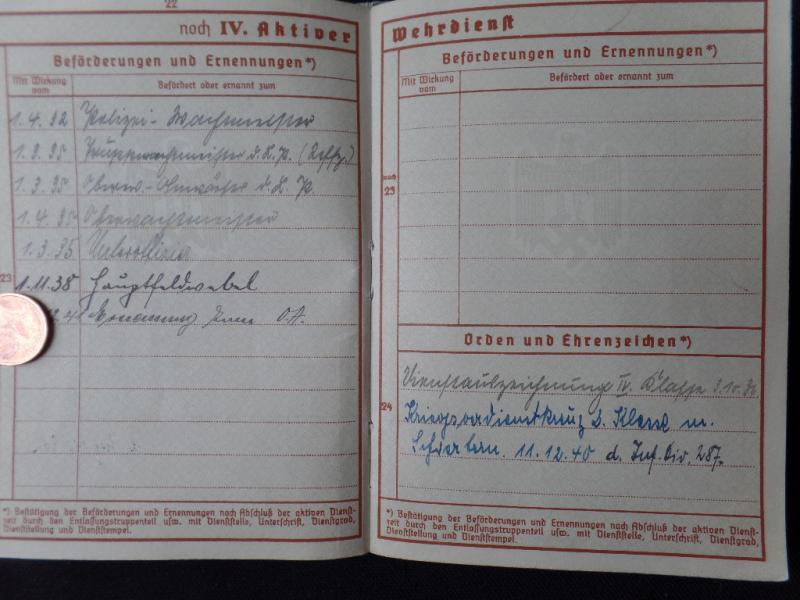 22
noch IV. Aktiver
Beförderungen und Ernennungen*)
Mit Wirkung vom
Befördert oder ernannt zum
1.4.32 Polizei-Wachtmeister
1.3.35 Truppwachtmeister d. L. P.
1.3.35 Oberw.-Anwärter d. L. P.
1.4.35 Oberwachtmeister
1.3.35 Unteroffizier
23
1.11.38 Hauptfeldwebel
Ernennung zum O.A.
*) Bestätigung der Beförderungen und Ernennungen nach Abschluß der aktiven Dienst-
zeit durch den Entlassungstruppenteil usw. mit Dienststelle, Unterschrift, Dienstgrad,
Dienststellung und Dienststempel.
Wehrdienst
Beförderungen und Ernennungen*)
Mit Wirkung vom
Befördert oder ernannt zum
23
Orden und Ehrenzeichen*)
Dienstauszeichnung IV. Klasse
24
Kriegsverdienstkreuz 2. Klasse m.
Schwertern. 11.12.40 d. Inf. Div. 287.
*) Bestätigung der Beförderungen und Ernennungen nach Abschluß der aktiven Dienst-
zeit durch den Entlassungstruppenteil usw. mit Dienststelle, Unterschrift, Dienstgrad,
Dienststellung und Dienststempel.